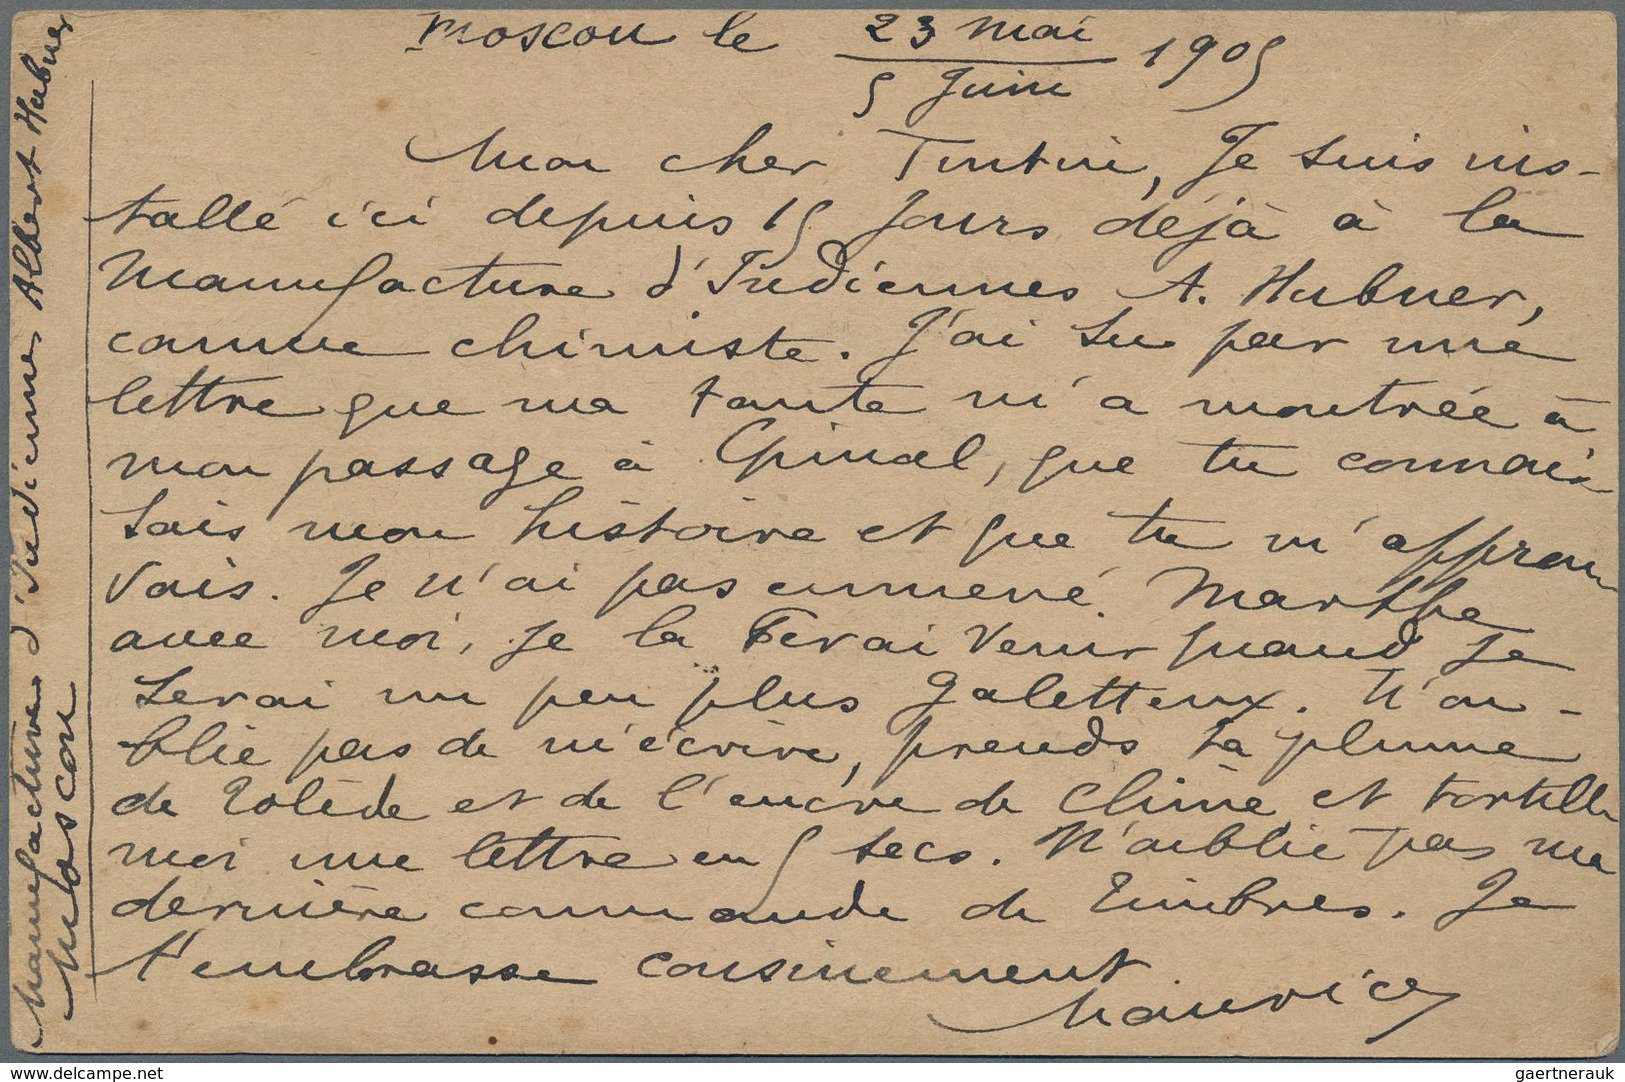 Moscou le 23 mai / 5 Juin 1905
Mon cher Tintin, Je suis ins-
tallé ici depuis 15 jours déjà à la
Manufacture d'Indiennes A. Hubner,
comme chimiste. J'ai su par une
lettre que ma tante m'a montrée à
mon passage à Epinal, que tu connais
sais mon histoire et que tu m'approu
vais. Je n'ai pas emmené Marthe
avec moi, je la ferai venir quand je
serai un peu plus galetteux. N'ou-
blie pas de m'écrire, prends ta plume
de Tolède et de l'encre de Chine et tortille
moi une lettre en 5 secs. N'oublie pas ma
dernière commande de Timbres. Je
t'embrasse cousinement
Maurice
Manufacture d'Indiennes Albert Hubner
Moscou
www.delcampe.net
gaertnerauk